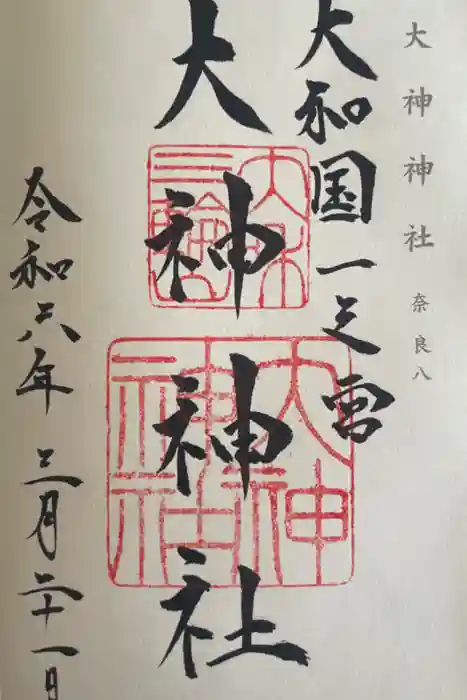 大神神社 奈良八
大和国一之宮
大神神社
令和六年三月二十一日
大和
三輪
大神
神社